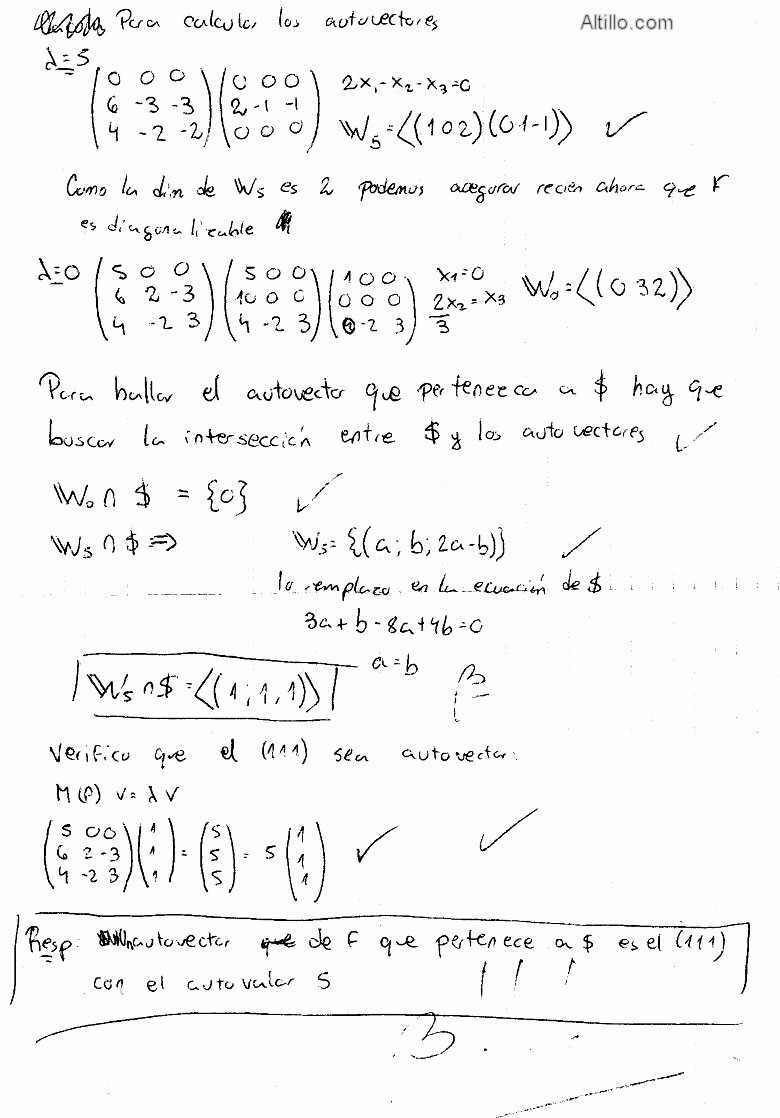 Para calcular los autovectores
Altillo.com
λ=5
(0 0 0 / 6 -3 -3 / 4 -2 -2) (0 0 0 / 2 -1 -1 / 0 0 0) 2x₁-x₂-x₃=0
W₅=⟨(102)(01-1)⟩ ✓
Como la dim de W₅ es 2 podemos asegurar recien ahora que F
es diagonalizable
λ=0 (5 0 0 / 6 2 -3 / 4 -2 3) (5 0 0 / 10 0 0 / 4 -2 3) (1 0 0 / 0 0 0 / 0 -2 3) x1=0 W₀=⟨(0 32)⟩
2x₂/3 = x₃
Para hallar el autovector que pertenezca a $ hay que
buscar la intersección entre $ y los autovectores ✓
W₀ ∩ $ = {0} ✓
W₅ ∩ $ ⇒ W₅= {(a; b; 2a-b)} ✓
lo remplazo en la ecuación de $
3a+b-8a+4b=0
a=b
W₅ ∩ $ =⟨(1;1,1)⟩
Verifico que el (111) sea autovector:
M(f) v= λ v
(5 0 0 / 6 2 -3 / 4 -2 3) (1 / 1 / 1) = (5 / 5 / 5) = 5 (1 / 1 / 1) ✓ ✓
Resp: autovector de F que pertenece a $ es el (111)
con el autovalor 5